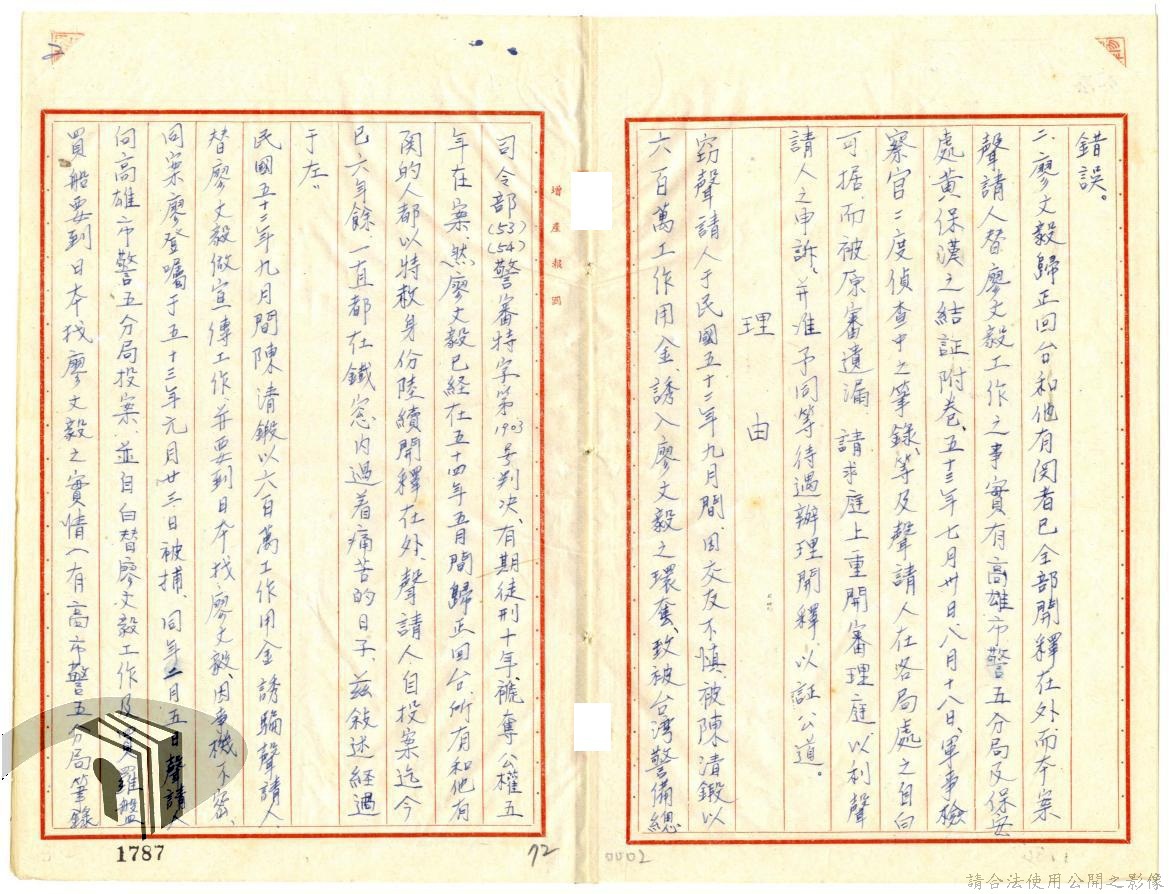 錯誤。
二、廖文毅歸正回台和他有関者已全部開釋在外而本案
聲請人替廖文毅工作之事實有高雄市警五分局及保安
處黃保漢之結証附卷、五十三年七月卅日、八月十八日、軍事檢
察官二度偵查中之筆錄、等及聲請人在各局處之自白
可据、而被原審遺漏 請求庭上重開審理庭以利聲
請人之申訴、并准予同等待遇辦理開釋以証公道。
理由
窃聲請人于民國五十二年九月間、因交友不慎、被陳清鍛以
六百萬工作用金、誘入廖文毅之環套、致被台湾警備總
司令部(53)(54)警審特字第1903号判决、有期徒刑十年、褫奪公權五
年在案、然廖文毅已経在五十四年五月間歸正回台、所有和他有
関的人都以特赦身份陸續開釋在外、聲請人、自投案迄今
已六年餘、一直都在鐵窓内過着痛苦的日子、茲敍述経過
于左〃
民國五十二年九月間陳清鍛以六百萬工作用金誘騙聲請人、
替廖文毅做宣傳工作、并要到日本找廖文毅、因事機不密、
同案廖登囑于五十三年元月廿三日被捕、同年二月五日聲請人
向高雄市警五分局投案、並自白替廖文毅工作及買羅盤
買船要到日本找廖文毅之實情(有高市警五分局筆錄
增產報國
1787
72
0002
請合法使用公開之影像